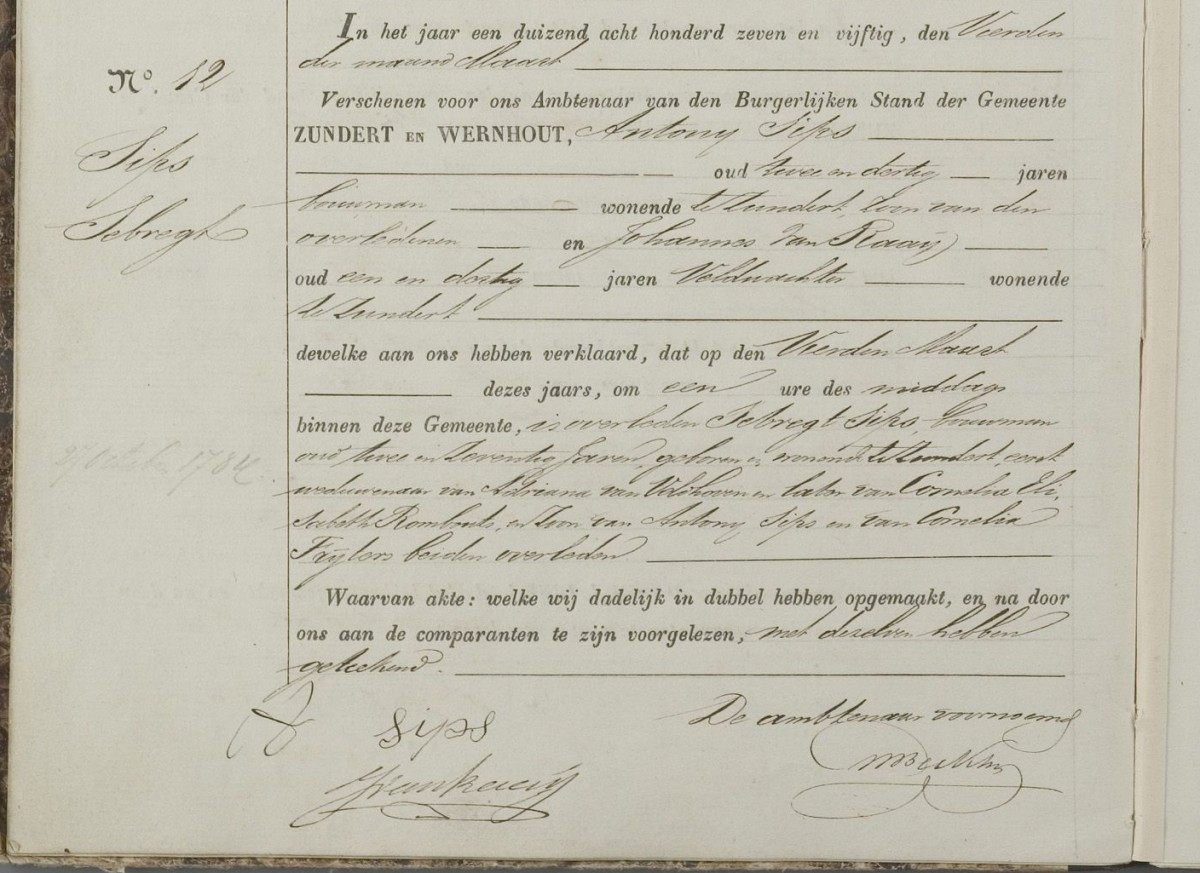 In het jaar een duizend acht honderd zeven en vijftig, den Vierden
der maand Maart
No. 12
Verschenen voor ons Ambtenaar van den Burgerlijken Stand der Gemeente
ZUNDERT EN WERNHOUT, Antony Sips
Sips
oud twee en dertig jaren
Sebregt
bouwman wonende te Zundert, Zoon van den
overledenen en Johannes van Raaij
oud een en dertig jaren Veldwachter wonende
te Zundert
dewelke aan ons hebben verklaard, dat op den Vierden Maart
dezes jaars, om een ure des middags
binnen deze Gemeente, is overleden Sebregt Sips, bouwman
oud twee en Zeventig Jaren, geboren en wonend te Zundert, eerst
27 October 1784.
weduwenaar van Adriana van Veldhoven en later van Cornelia Eli,
sabeth Rombouts, en Zoon van Antony Sips en van Cornelia
Frijters beiden overleden
Waarvan akte: welke wij dadelijk in dubbel hebben opgemaakt, en na door
ons aan de comparanten te zijn voorgelezen, met dezelven hebben
geteekend.
Sips
De ambtenaar voornoemd
J van Raaij